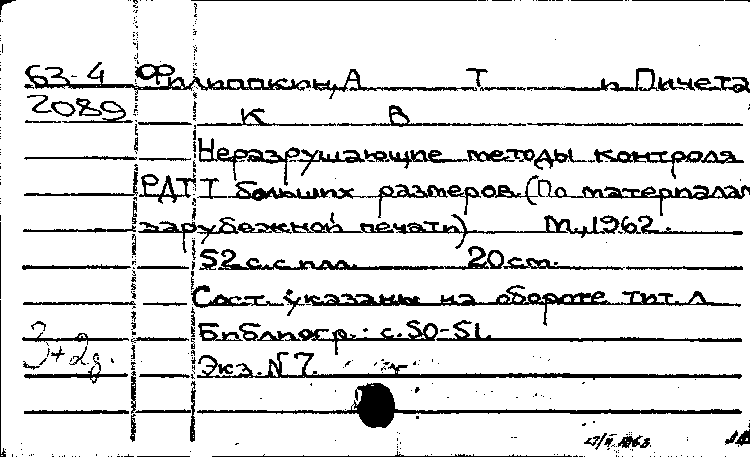 63-4 Филиппкин, А Т и Пичета
2089 К В
Неразрушающие методы контроля
РДТТ больших размеров. (По материалам
зарубежной печати) М., 1962.
52 с. с илл. 20 см.
Сост. указаны на обороте тит. л
Библиогр.: с. 50-51.
3+2д.
Экз. N 7.